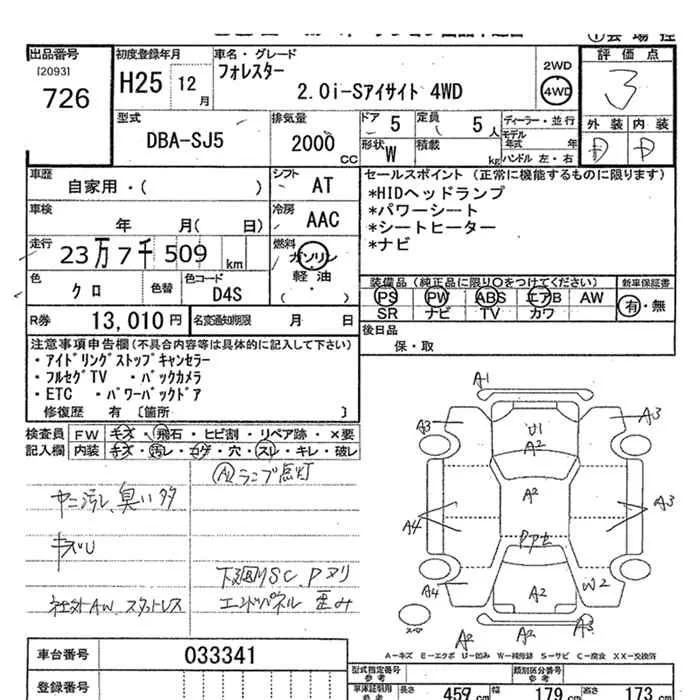 出品番号
[2093]
726
初度登録年月
H25 12月
車名・グレード
フォレスター
2.0i-Sアイサイト 4WD
2WD
4WD
評価点
3
外装 内装
D D
型式
DBA-SJ5
排気量
2000 CC
ドア 5
定員 5人
形状 W
積載 kg
ディーラー・並行
モデル年式 年
ハンドル 左・右
車歴
自家用・( )
シフト AT
車検
年 月( 日)
冷房 AAC
走行
23万7千509 km
燃料
ガソリン
軽油
( ・ )
色
クロ
色替
色コード
D4S
R券 13,010円
名変通知期限 月 日
セールスポイント (正常に機能するものに限ります)
*HIDヘッドランプ
*パワーシート
*シートヒーター
*ナビ
装備品 (純正品に限り〇をつけてください)
PS PW ABS エアB AW
SR ナビ TV カワ
新車保証書
有・無
後日品
保・取
注意事項申告欄 (不具合内容等は具体的に記入して下さい)
・アイドリングストップキャンセラー
・フルセグTV ・バックカメラ
・ETC ・パワーバックドア
修復歴 有 [箇所 ]
検査員記入欄
FW キズ・飛石・ヒビ割・リペア跡・×要
内装 キズ・汚レ・コゲ・穴・スレ・キレ・破レ
ヤニ汚レ、臭い多
キズU
社外AW、スタットレス
ランプ点灯
下廻りSC、Pヌリ
エンドパネル 歪み
A1
A3
A3
U1
A2
A2
A4
A3
A4
A2
W2
スペア
A2
A2
A3
A－キズ E－エクボ U－凹み W－補修跡 S－サビ C－腐食 XX－交換済
車台番号
033341
登録番号
型式指定番号 参考
類別区分番号 参考
長さ 459 cm
幅 179 cm
高さ 173 cm